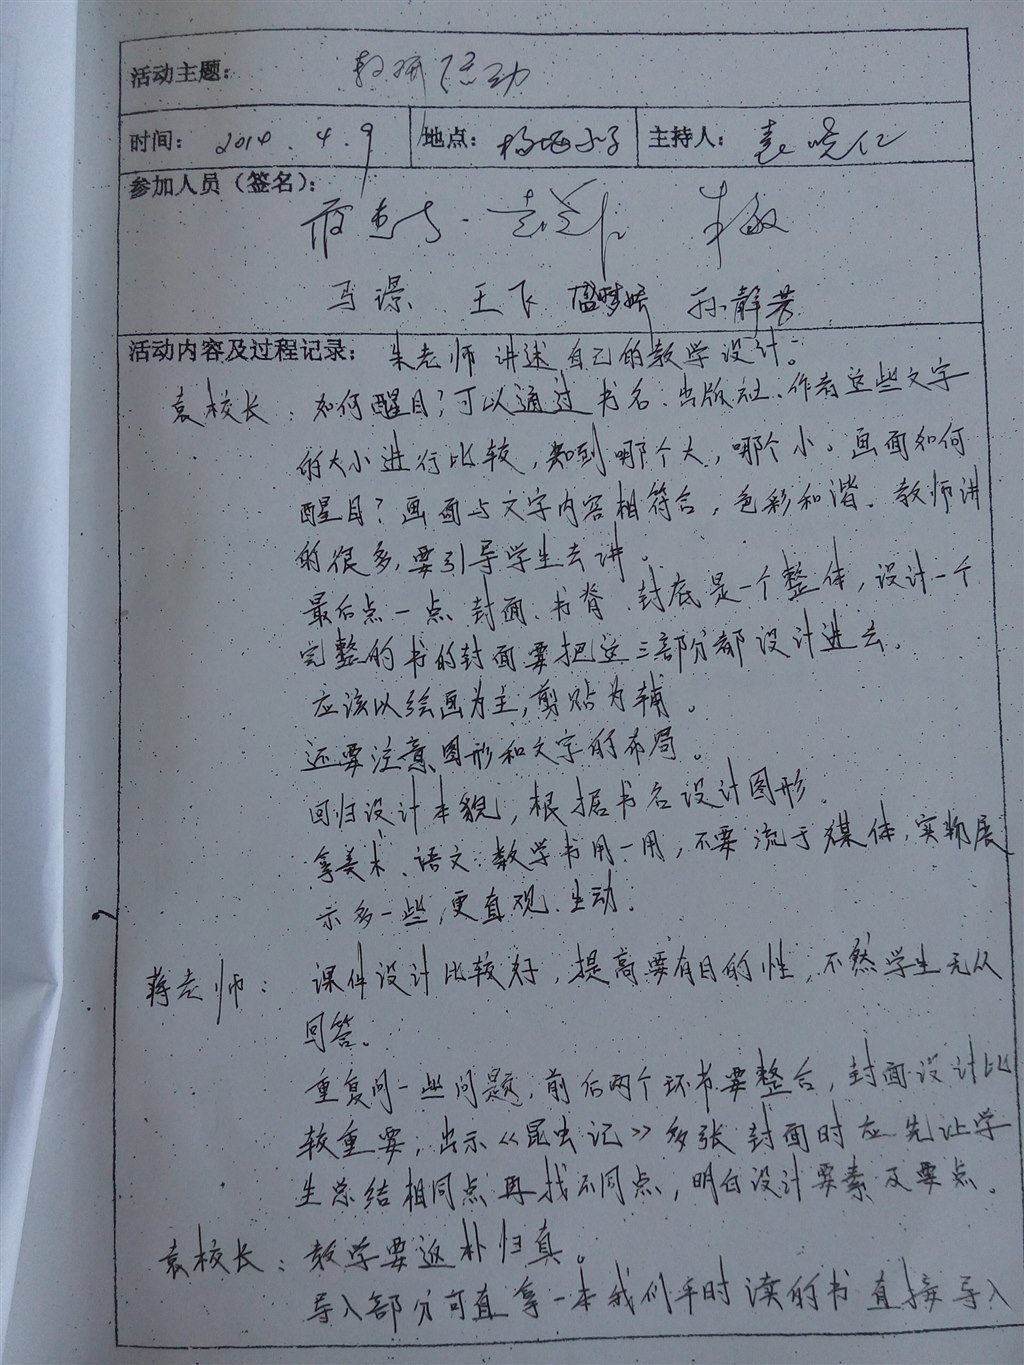 活动主题： 教研活动
时间： 2014.4.9 地点： 杨梅小学 主持人： 袁晓仁
参加人员（签名）：
朱敏
马璟 王飞 孙静芳
活动内容及过程记录： 朱老师讲述自己的教学设计。
袁校长：如何醒目？可以通过书名、出版社、作者这些文字
的大小进行比较，知到哪个大，哪个小。画面如何
醒目？画面与文字内容相符合，色彩和谐。教师讲
的很多，要引导学生去讲。
最后点一点封面、书脊、封底是一个整体，设计一个
完整的书的封面要把这三部分都设计进去。
应该以绘画为主，剪贴为辅。
还要注意图形和文字的布局。
回归设计本貌，根据书名设计图形。
拿美术、语文、数学书用一用，不要流于媒体，实物展
示多一些，更直观、生动。
蒋老师：课件设计比较好，提高要有目的性，不然学生无从
回答。
重复问一些问题，前后两个环节要整合，封面设计比
较重要，出示《昆虫记》多张封面时应先让学
生总结相同点再找不同点，明白设计要素及要点。
袁校长：教学要返朴归真。
导入部分可直拿一本我们平时读的书直接导入